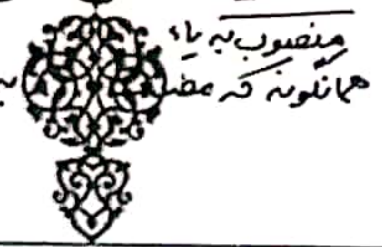 منصوب به یاء
همانگونه که عضـ